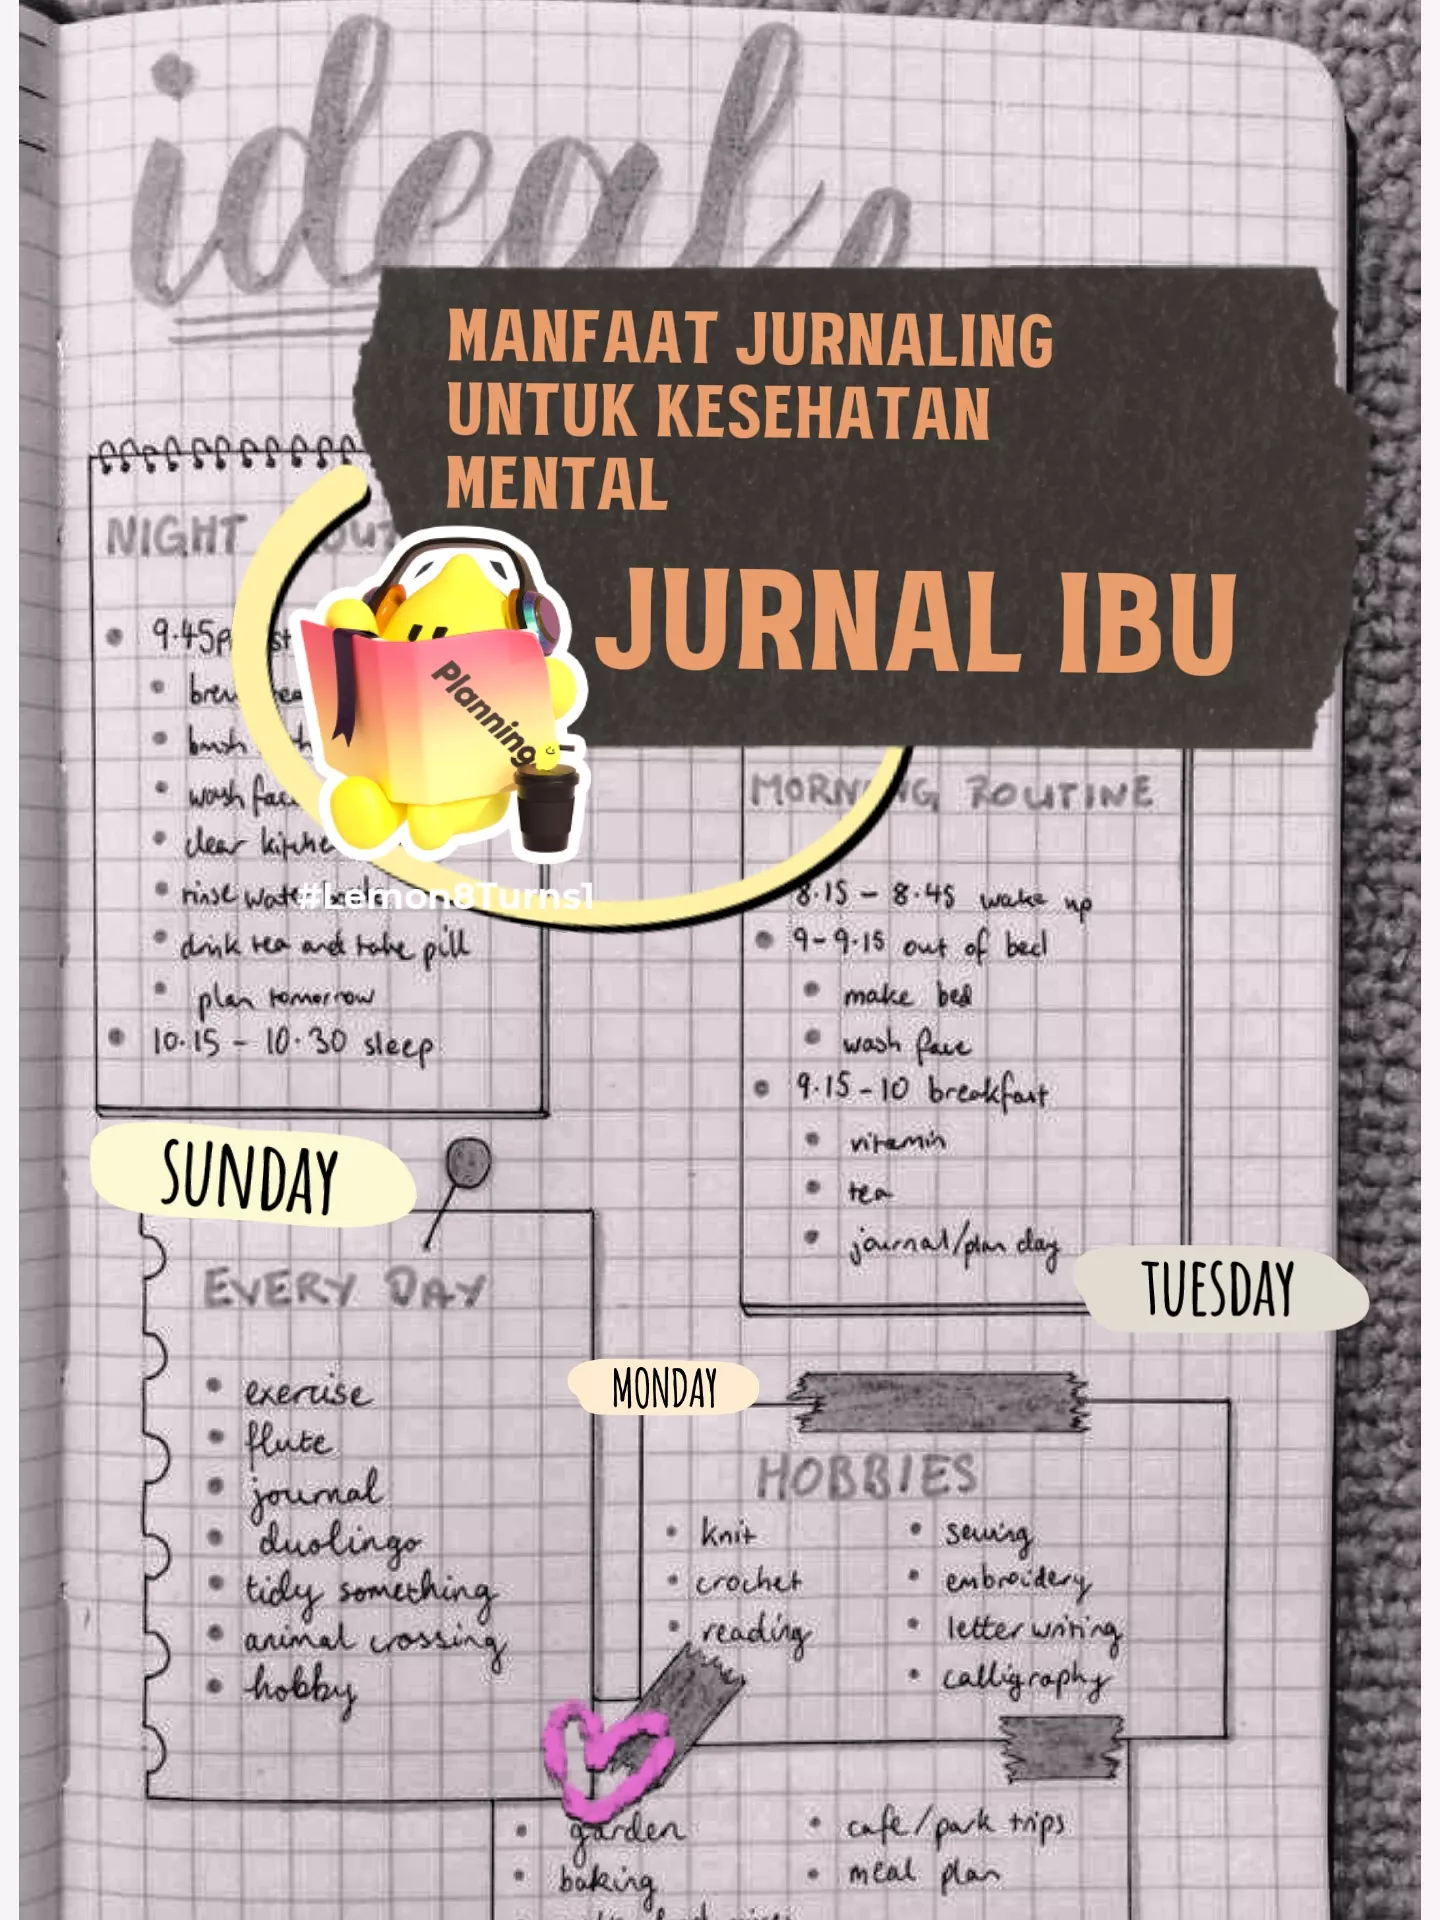 ideal
MANFAAT JURNALING
UNTUK KESEHATAN
MENTAL
JURNAL IBU
NIGHT
9.45p
wash face
clear
rinse
drink tea and take pill
plan tomorrow
10.15 - 10.30 sleep
Planning
#Lemon8Turns1
MORNING ROUTINE
8.15 - 8.45 wake up
9-9.15 out of bed
make bed
wash face
9.15-10 breakfast
vitamin
tea
journal/plan day
SUNDAY
TUESDAY
EVERY DAY
exercise
flute
journal
duolingo
tidy something
animal crossing
hobby
MONDAY
HOBBIES
knit
crochet
reading
sewing
embroidery
letter writing
calligraphy
garden
baking
cafe/park trips
meal plan